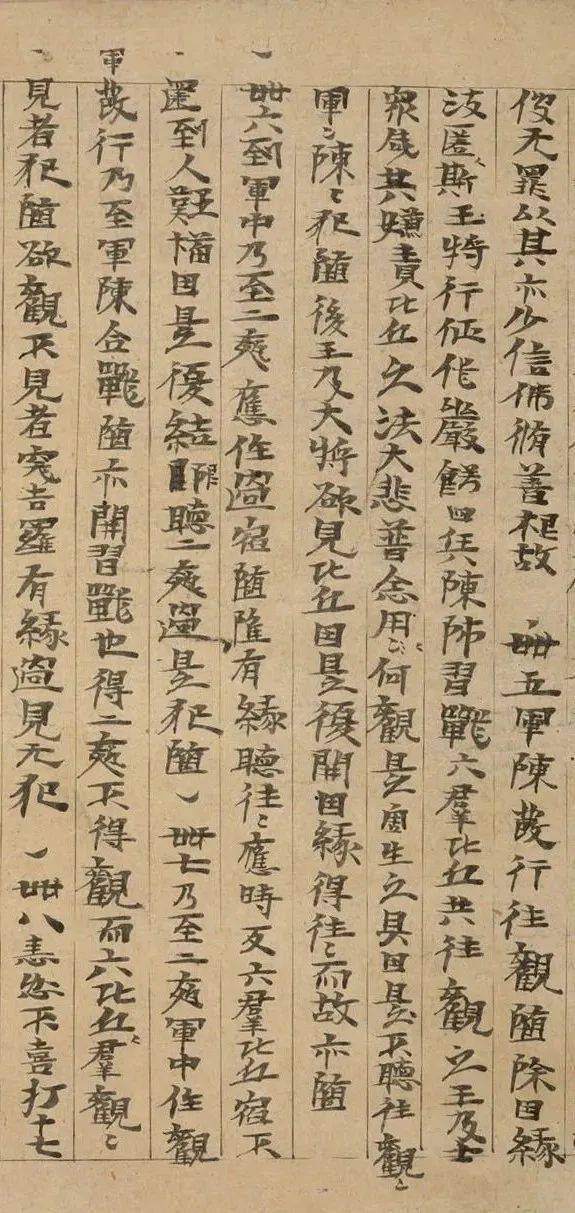 伇无罪以其亦少信佛脩善根故 丶卌五軍陳發行往觀随除因縁
波匿斯王時行征伐嚴餝四兵陳師習戰六羣比丘共往觀之王及士
衆咸共嫌責比丘之法大悲普念用〻何觀是害生之具因是不聽往觀〻
軍〻陳〻犯随後王及大将欲見比丘因是復開因縁得往〻而故亦随
丶卌六到軍中乃至二夜應住過宿随雖有縁聽往〻應時反六羣比丘宿不
還到人難惱因是復結限聽二夜過是犯随 丶卌七乃至二夜軍中住觀
軍發行乃至軍陳合戰随亦開習戰也得二夜不得觀而六比丘羣觀〻
見者犯随欲觀不見者突吉羅有縁過見无犯 丶卌八恚忿不喜打十七